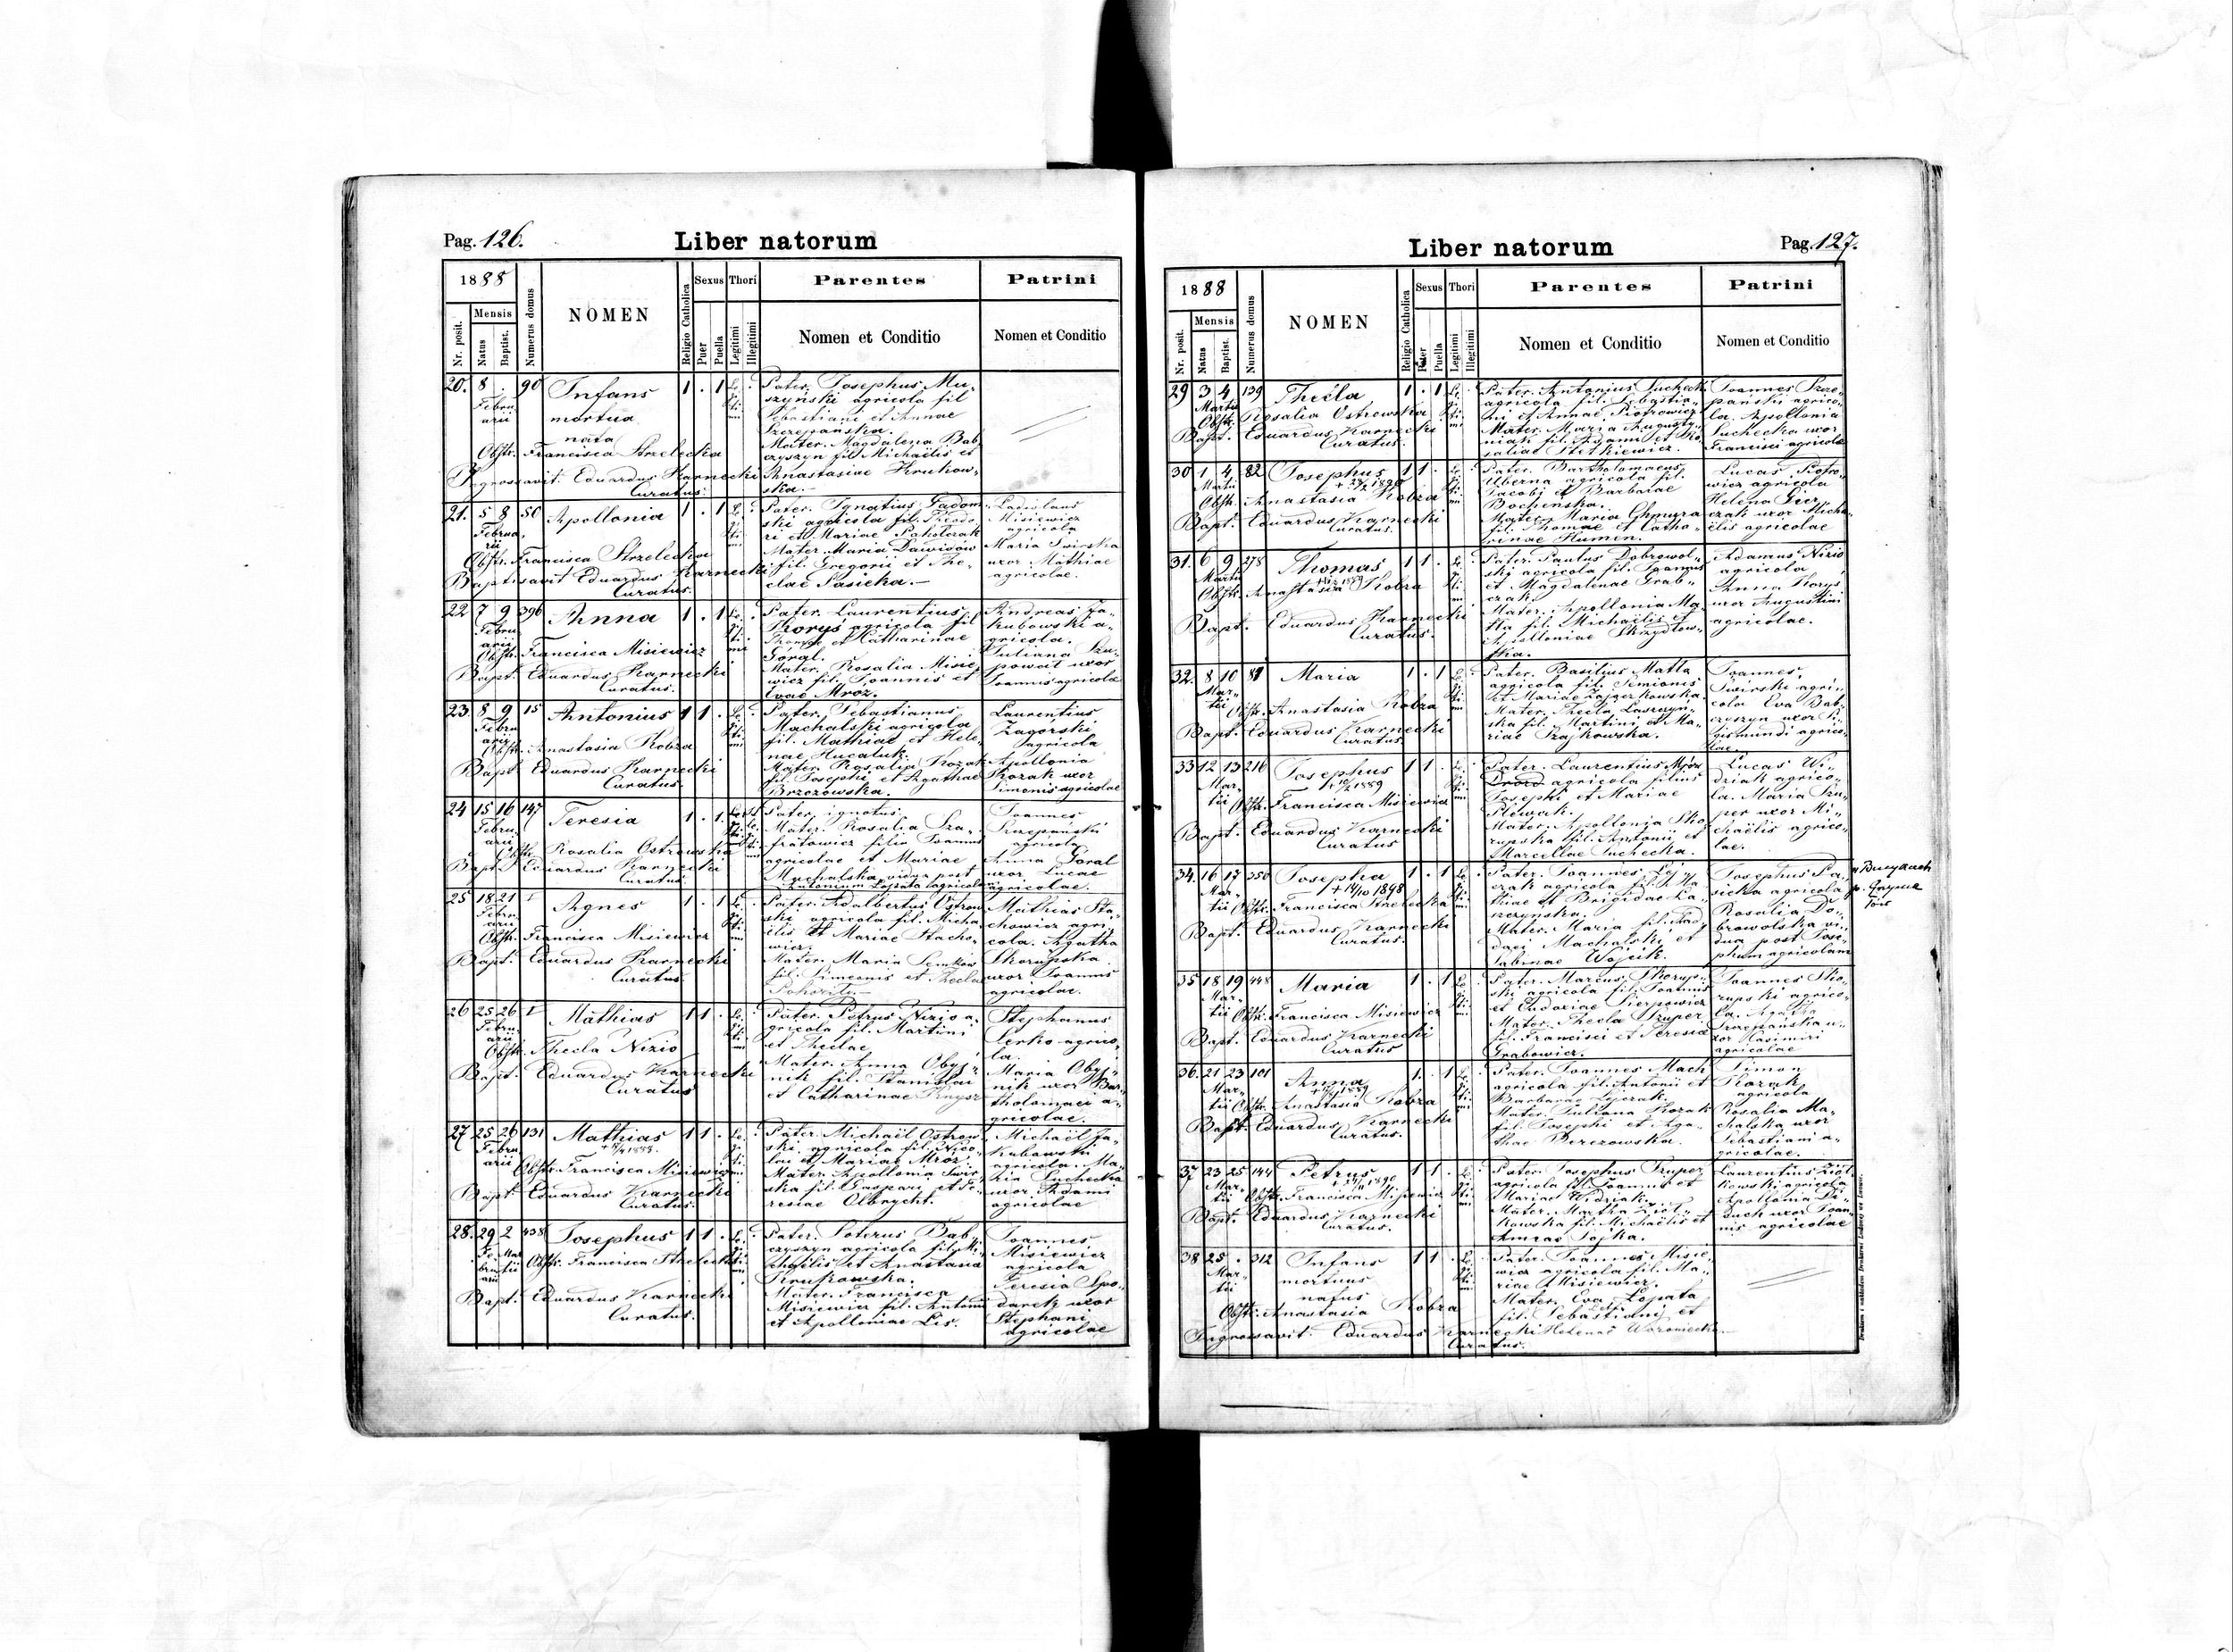 Pag. 126.
Liber natorum
1888
Nr. posit.
Mensis
Natus
Baptist.
Numerus domus
NOMEN
Religio Catholica
Sexus
Puer
Puella
Thori
Legitimi
Illegitimi
Parentes
Nomen et Conditio
Patrini
Nomen et Conditio
20. 8 . 90 Infans 1 . 1
Februarii
mortua
nata
Obstr. Francisca Strzelecka
Ingrossavit Eduardus Karnecki
Curatus.
Pater. Josephus Mu-
szyński agricola fil
Sebastiani et Annae
Szczepańska.
Mater. Magdalena Bab-
czyszyn fil Michaelis et
Anastasiae Krukow-
ska.
21. 5 8 50 Apollonia 1 . 1
Obstr. Francisca Strzelecka
Baptisavit Eduardus Karnecki
Curatus.
Pater. Ignatius Gadom-
ski agricola fil. Theodo-
ri et Mariae
Mater Maria Dawidow
fil. Gregorii et The-
clae Pasieka.
Ladislaus
Misiewicz
agricola
Maria Swirska
uxor Mathiae
agricolae.
22 7 9 396 Anna 1 . 1
Obstr. Francisca Misiewicz
Bapt. Eduardus Karnecki
Curatus.
Pater. Laurentius
Koryś agricola fil
Thomae et Catharinae
Góral.
Mater. Rosalia Misie-
wicz fil. Joannis et
Evae Mróz.
Andreas Ja-
kubowski a-
gricola.
Juliana
uxor
Joannis agricolae
23 8 9 15 Antonius 1 1 .
Obstr. Anastasia Kobza
Bapt. Eduardus Karnecki
Curatus.
Pater. Sebastianus
Machalski agricola
fil. Mathiae et Hele-
nae Hucaluk.
Mater. Rosalia Kozak
fil. Josephi et Agathae
Brzezowska.
Laurentius
Zagórski
agricola
Apollonia
Kozak uxor
Simonis agricolae
24 15 16 147 Teresia 1 . 1
Obstr. Rosalia Ostrowska
Bapt. Eduardus Karnecki
Curatus.
Pater ignotus
Mater. Rosalia Sza-
fratowicz filia Joannis
agricolae et Mariae
Machalska vidua post
Antonium Łopata agricolam
Joannes
Szczepański
agricola
Anna Góral
uxor Lucae
agricolae.
25 18 21 1 Agnes 1 . 1
Obstr. Francisca Misiewicz
Bapt. Eduardus Karnecki
Curatus.
Pater. Adalbertus Ostrow-
ski agricola fil. Micha-
elis et Mariae Stacho-
wicz.
Mater. Maria Semkow
fil. Simeonis et Theclae
Mathias Sta-
chowicz agri-
cola. Agatha
Skorupska
uxor Joannis
agricolae.
26 25 26 1 Mathias 1 1 .
Obstr. Thecla Nizio
Bapt. Eduardus Karnecki
Curatus
Pater. Petrus Nizio a-
gricola fil. Martini
et Theclae
Mater. Anna Obyj-
nik fil. Stanislai
et Catharinae Knysz
Stephanus
Serko agrico-
la.
Maria Obyj-
nik uxor Bar-
tholomaei a-
gricolae.
27 25 26 131 Mathias 1 1 .
Obstr. Francisca Misiewicz
Bapt. Eduardus Karnecki
Curatus.
Pater. Michaël Ostrow-
ski agricola fil. Nico-
lai et Mariae Mróz.
Mater Apollonia Swir-
ska fil. Gaspari et Te-
resiae Olbrycht.
Michaël Ja-
kubowski
agricola. Ma-
ria Suchecka
uxor Adami
agricolae
28. 29 2 438 Josephus 1 1 .
Obstr. Francisca Strzelecka
Bapt. Eduardus Karnecki
Curatus.
Pater. Soterus Bab-
czyszyn agricola fil. Mi-
chaelis et Anastasiae
Krukowska.
Mater. Francisca
Misiewicz fil. Antonii
et Apolloniae Lis.
Joannes
Misiewicz
agricola
Teresia Spo-
daryk uxor
Stephani
agricolae
Liber natorum
Pag. 127.
1888
Nr. posit.
Mensis
Natus
Baptist.
Numerus domus
NOMEN
Religio Catholica
Sexus
Puer
Puella
Thori
Legitimi
Illegitimi
Parentes
Nomen et Conditio
Patrini
Nomen et Conditio
29 3 4 139 Thecla 1 . 1
Martii
Obstr. Rosalia Ostrowska
Bapt. Eduardus Karnecki
Curatus.
Pater. Antonius Suchecki
agricola fil. Sebastia-
ni et Annae Piotrowicz
Mater. Maria Augusty-
niak fil. Adami et Ro-
saliae Stetkiewicz.
Joannes Szcze-
pański agrico-
la. Apollonia
Suchecka uxor
Francisci agricolae
30 1 4 82 Josephus 1 1 .
Martii
Obstr. Anastasia Kobza
Bapt. Eduardus Karnecki
Curatus.
Pater. Bartholomaeus
Uberna agricola fil.
Jacobi et Barbarae
Bochenska.
Mater. Maria Chmura
fil. Thomae et Catha-
rinae Humen.
Lucas Piotro-
wicz agricola
Helena Gier-
czak uxor Micha-
elis agricolae
31. 6 9 278 Thomas 1 1 .
Martii
Obstr. Anastasia Kobza
Bapt. Eduardus Karnecki
Curatus.
Pater. Paulus Dobrowol-
ski agricola fil. Joannis
et Magdalenae Grab-
czak.
Mater. Apollonia Ma-
tla fil. Michaelis et
Apolloniae Skrzydłow-
ska.
Adamus Nizio
agricola
Anna Koryś
uxor Augustini
agricolae.
32. 8 10 81 Maria 1 . 1
Martii
Obstr. Anastasia Kobza
Bapt. Eduardus Karnecki
Curatus
Pater. Basilius Matla
agricola fil. Semionis
et Mariae Zajączkowska.
Mater. Thecla Laszczyń-
ska fil. Martini et Ma-
riae Szajkowska.
Joannes
Swirski agri-
cola Eva Bab-
czyszyn uxor Si-
gismundi agrico-
lae.
33 12 13 216 Josephus 1 1 .
Martii
Obstr. Francisca Misiewicz
Bapt. Eduardus Karnecki
Curatus
Pater. Laurentius Mróz
agricola filius
Josephi et Mariae
Plewak.
Mater. Apollonia Sko-
rupska fil. Antonii et
Marcellae Suchecka.
Lucas Wi-
driak agrico-
la. Maria Szu-
per uxor Mi-
chaëlis agrico-
lae.
34. 16 17 350 Josepha 1 . 1
+ 14/10 1898
Martii
Obstr. Francisca Strzelecka
Bapt. Eduardus Karnecki
Curatus.
Mater. Maria fil. Thad-
daei Machalski et
Sabinae Wójcik.
Josephus Pa-
sieka agricola
Rosalia Do-
browolska vi-
dua post Jose-
phum agricolam
35 18 19 448 Maria 1 . 1
Martii
Obstr. Francisca Misiewicz
Bapt. Eduardus Karnecki
Curatus
Pater. Marcus Skorup-
ski agricola fil. Joannis
et Eudoxiae Sierpowicz
Mater. Thecla Szuper
fil. Francisci et Teresiae
Grabowicz.
Joannes Sko-
rupski agrico-
la. Agatha
Szczepańska u-
xor Kasimiri
agricolae
36. 21 23 101 Anna 1 . 1
Martii
Obstr. Anastasia Kobza
Bapt. Eduardus Karnecki
Curatus.
Pater. Joannes Mach
agricola fil. Antonii et
Barbarae Łojczak.
Mater. Juliana Kozak
fil. Josephi et Aga-
thae Berezowska.
Simon
Kozak
agricola
Rosalia Ma-
chalska uxor
Sebastiani a-
gricolae.
37 23 25 144 Petrus 1 1 .
Martii
Obstr. Francisca Misiewicz
Bapt. Eduardus Karnecki
Curatus.
Pater. Josephus Szuper
agricola fil. Joannis et
Mariae Widriak.
Mater. Martha Ziół-
kowska fil. Michaëlis et
Annae Sojka.
Laurentius Ziół-
kowski agricola
Apollonia Di-
duch uxor Joan-
nis agricolae
38 25 . 312 Infans 1 1 .
Martii
mortuus
natus
Obstr. Anastasia Kobza
Ingrossavit. Eduardus Karnecki
Curatus.
Pater. Joannes Misie-
wicz agricola fil. Ma-
riae Misiewicz.
Mater. Eva Łopata
fil. Sebastiani et
Helenae Woroniecka